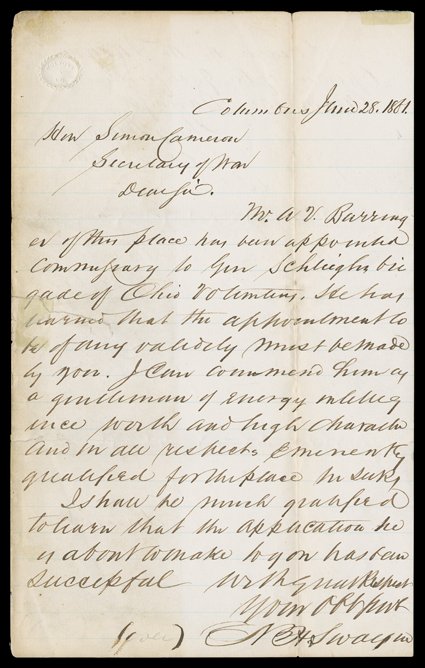 Columbus June 28. 1861.
Hon Simon Cameron
Secretary of War
Dear Sir.
Mr. A. V. Barring
er of this place has been appointed
Commissary to Gen Schleighs bri
gade of Ohio Volunteers. He has
learned that the appointment to
be of any validity must be made
by you. I can commend him as
a gentleman of energy intellig
ence worth and high character
and in all respects eminently
qualified for the place he seeks
I shall be much gratified
to learn that the application he
is about to make to you has been
successful With great respect
Your Obt Servt
N H Swayne
(over)